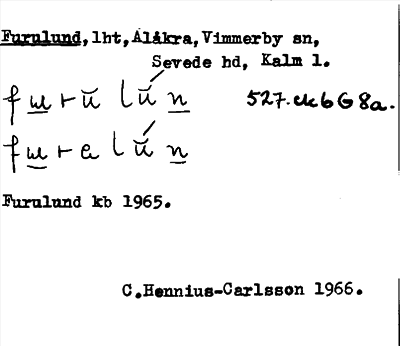 Furulund, lht, Älåkra, Vimmerby sn,
Sevede hd, Kalm l.
527. ekb G 8a.
Furulund kb 1965.
C.Hennius-Carlsson 1966.